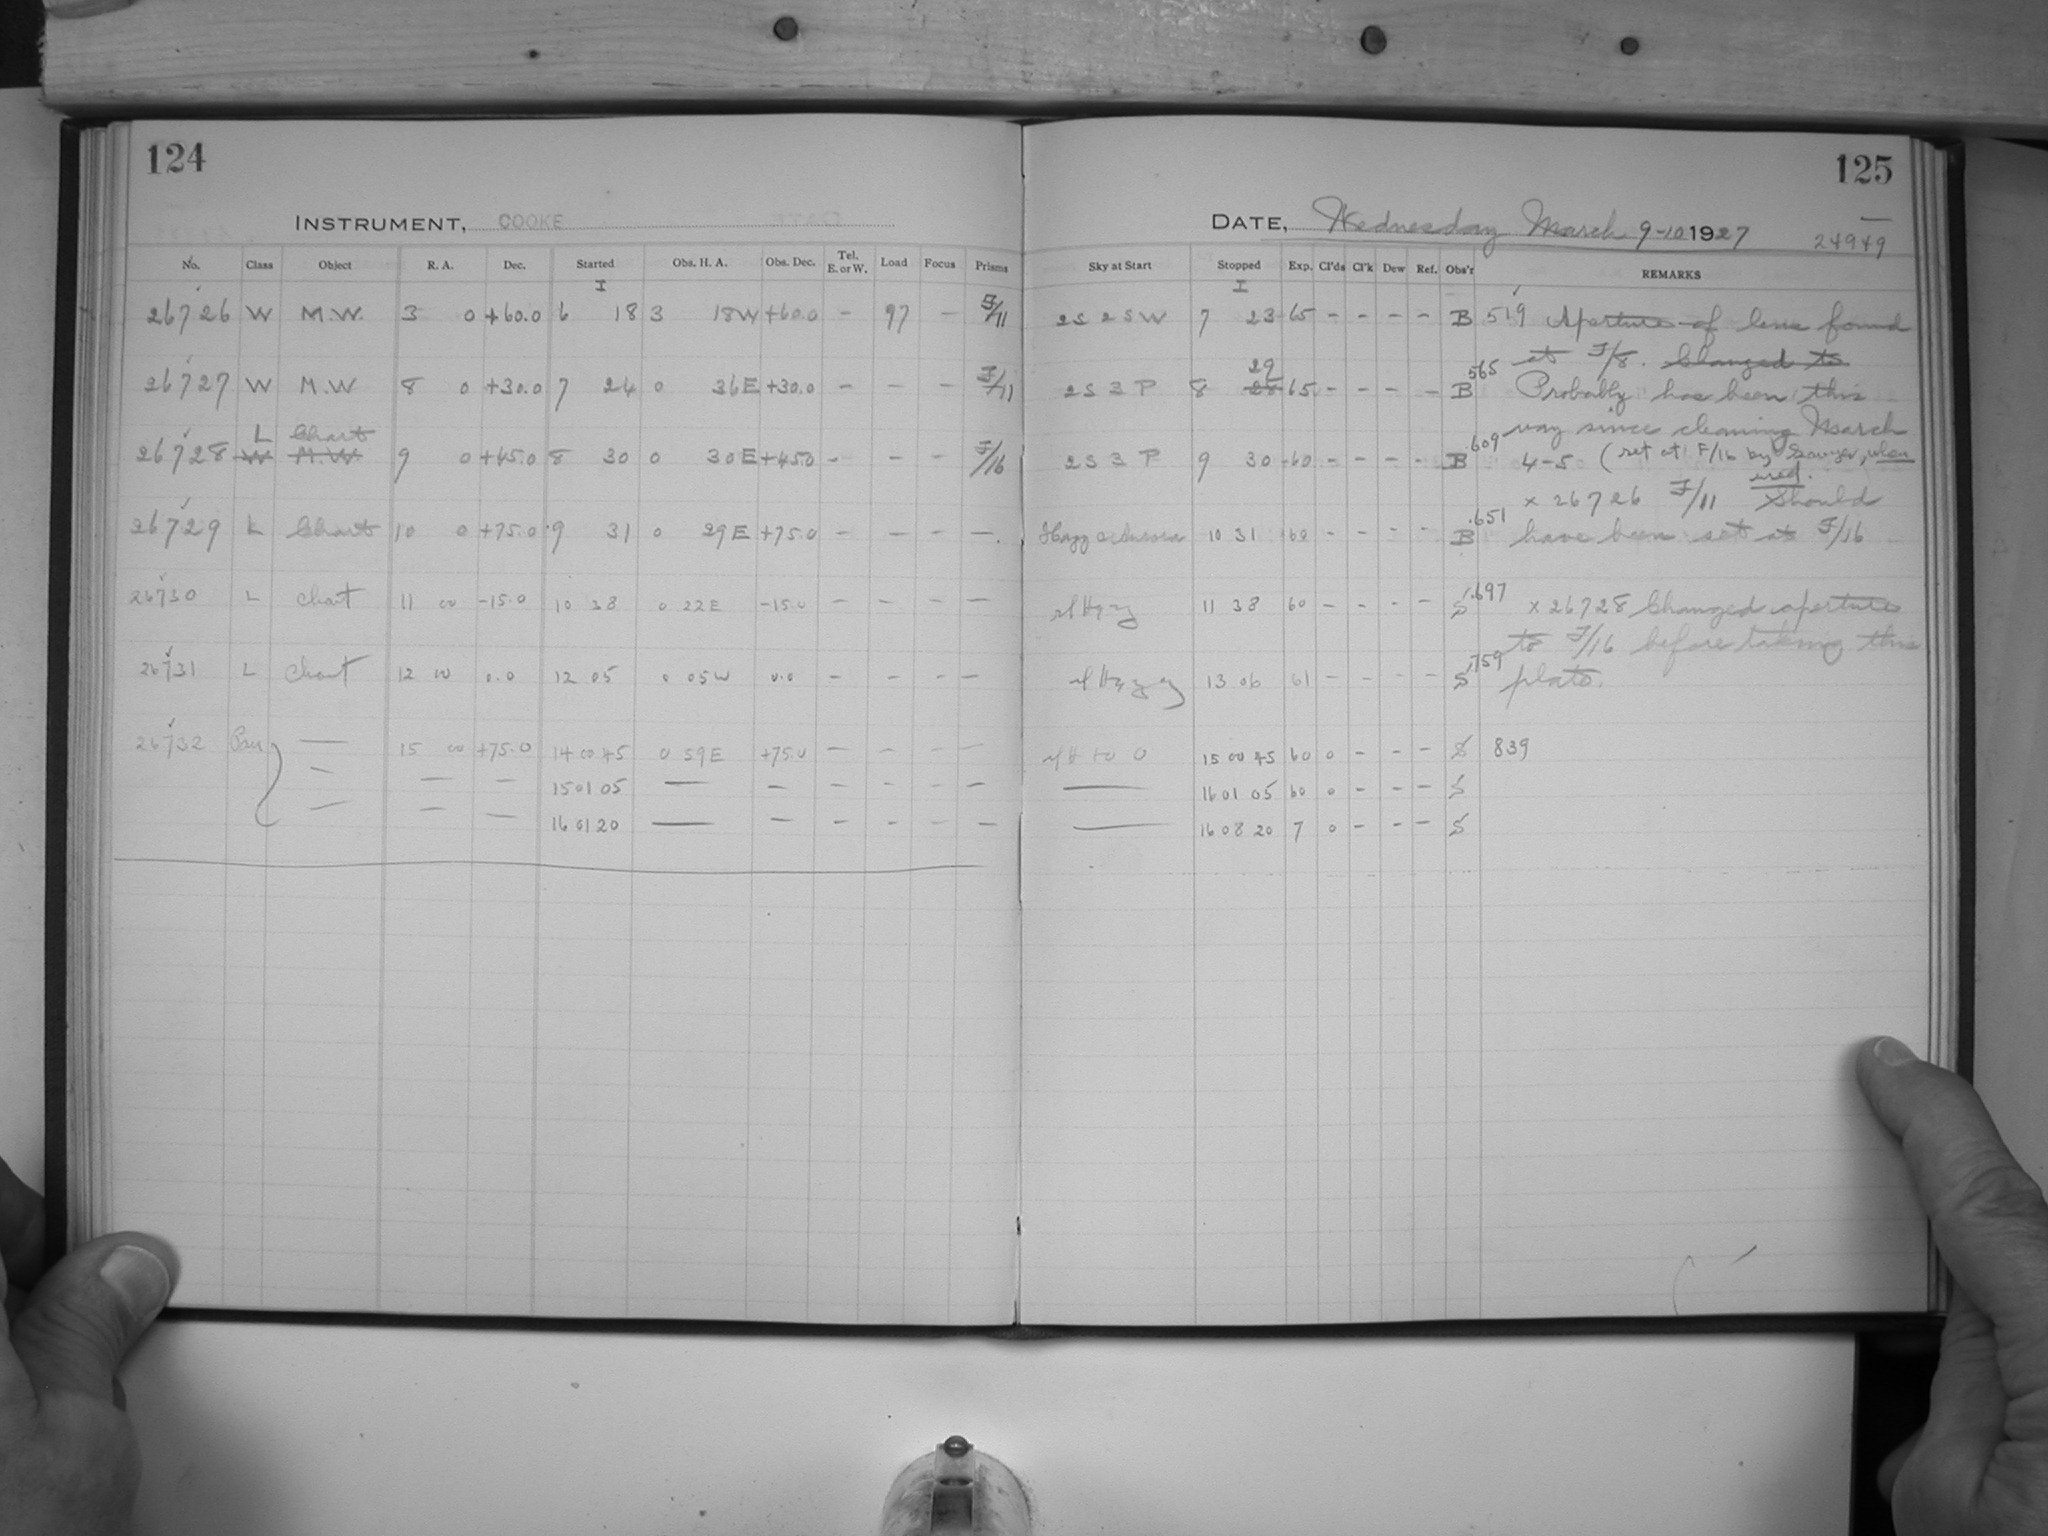 124
INSTRUMENT, COOKE
No. Class Object R. A. Dec. Started Obs. H. A. Obs. Dec. Tel. E. or W. Load Focus Prisms
I
26726 W M.W. 3 0 +60.0 6 18 3 18W +60.0 - 97 - F/11
26727 W M.W 8 0 +30.0 7 24 0 36E +30.0 - - - F/11
L Chart
26728 W M.W 9 0 +45.0 8 30 0 30E +45.0 - - - F/16
26729 L Chart 10 0 +75.0 9 31 0 29E +75.0 - - - -
26730 L Chart 11 00 -15.0 10 38 0 22E -15.0 - - - -
26731 L Chart 12 00 0.0 12 05 0 05W 0.0 - - - -
26732 15 00 +75.0 14 00 45 0 59E +75.0 - - - -
- - - 15 01 05 - - - - - -
- - - 16 01 20 - - - - - -
125
DATE, Wednesday March 9-10 1927 24949
Sky at Start Stopped Exp. Cl'ds Cl'k Dew Ref. Obs'r REMARKS
I
2S 2SW 7 23 65 - - - - B 519 Aperture of lens found
29
at F/8. Changed to
2S 3P 8 28 65 - - - - B .565 Probably has been this
way since cleaning March
2S 3P 9 30 60 - - - - B .609 4-5 (set at F/16 by Sawyer, when
used.
x 26726 F/11 Should
Hazy 10 31 60 - - - - B .651 have been set at F/16
sl Hazy 11 38 60 - - - - S .697 x 26728 Changed aperture
to F/16 before taking this
sl Hazy 13 06 61 - - - - S .759 plate.
sl H to 0 15 00 45 60 0 - - - S 839
- 16 01 05 60 0 - - - S
- 16 08 20 7 0 - - - S